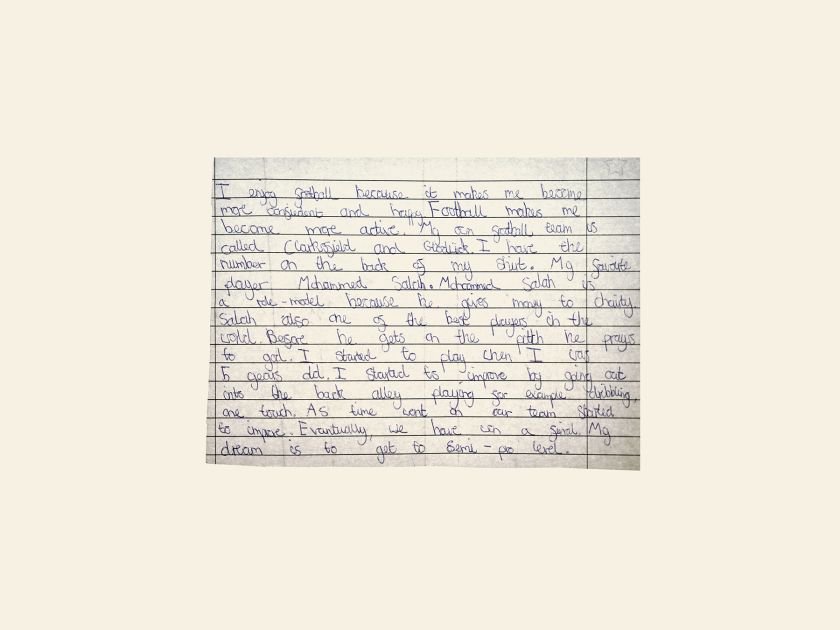 I enjoy football because it makes me become
more confident and happy. Football makes me
become more active. My own football team is
called Clarkesfield and I have the
number on the back of my shirt. My favourite
player Mohammed Salah. Mohammed Salah is
a role-model because he gives money to charity.
Salah also one of the best players in the
world. Before he gets on the pitth he prays
to god. I started to play when I was
5 years old. I started to improve by going out
into the back alley playing for example dribbling,
one touch. As time went on our team started
to improve. Eventually, we have won a final. My
dream is to get to Semi-pro level.